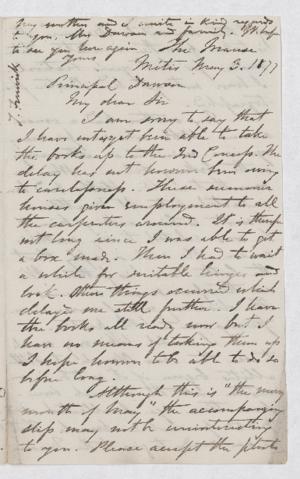 my mother and I unite in kind regards
to you, Mrs Dawson and family. We hope
to see you here again
Yours
T. Fenwick
The Manse
Metis May 3. 1877
Principal Dawson
My dear Sir
I am sorry to say that
I have not yet been able to take
the books up to the 2nd Concess. The
delay has not however been owing
to carelessness. These summer
houses give employment to all
the carpenters around. It is
not long since I was able to get
a box made. Then I had to wait
a while for suitable hinges and
lock. Other things occurred which
delayed me still further. I have
the books all ready now but I
have no means of taking them up
I hope however to be able to do so
before long.
Although this is "the merry
month of May" the accompanying
slip may not be uninteresting
to you. Please accept the